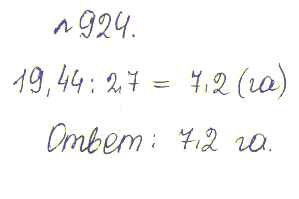 №924.
19,44 : 2,7 = 7,2 (га)
Ответ: 7,2 га.